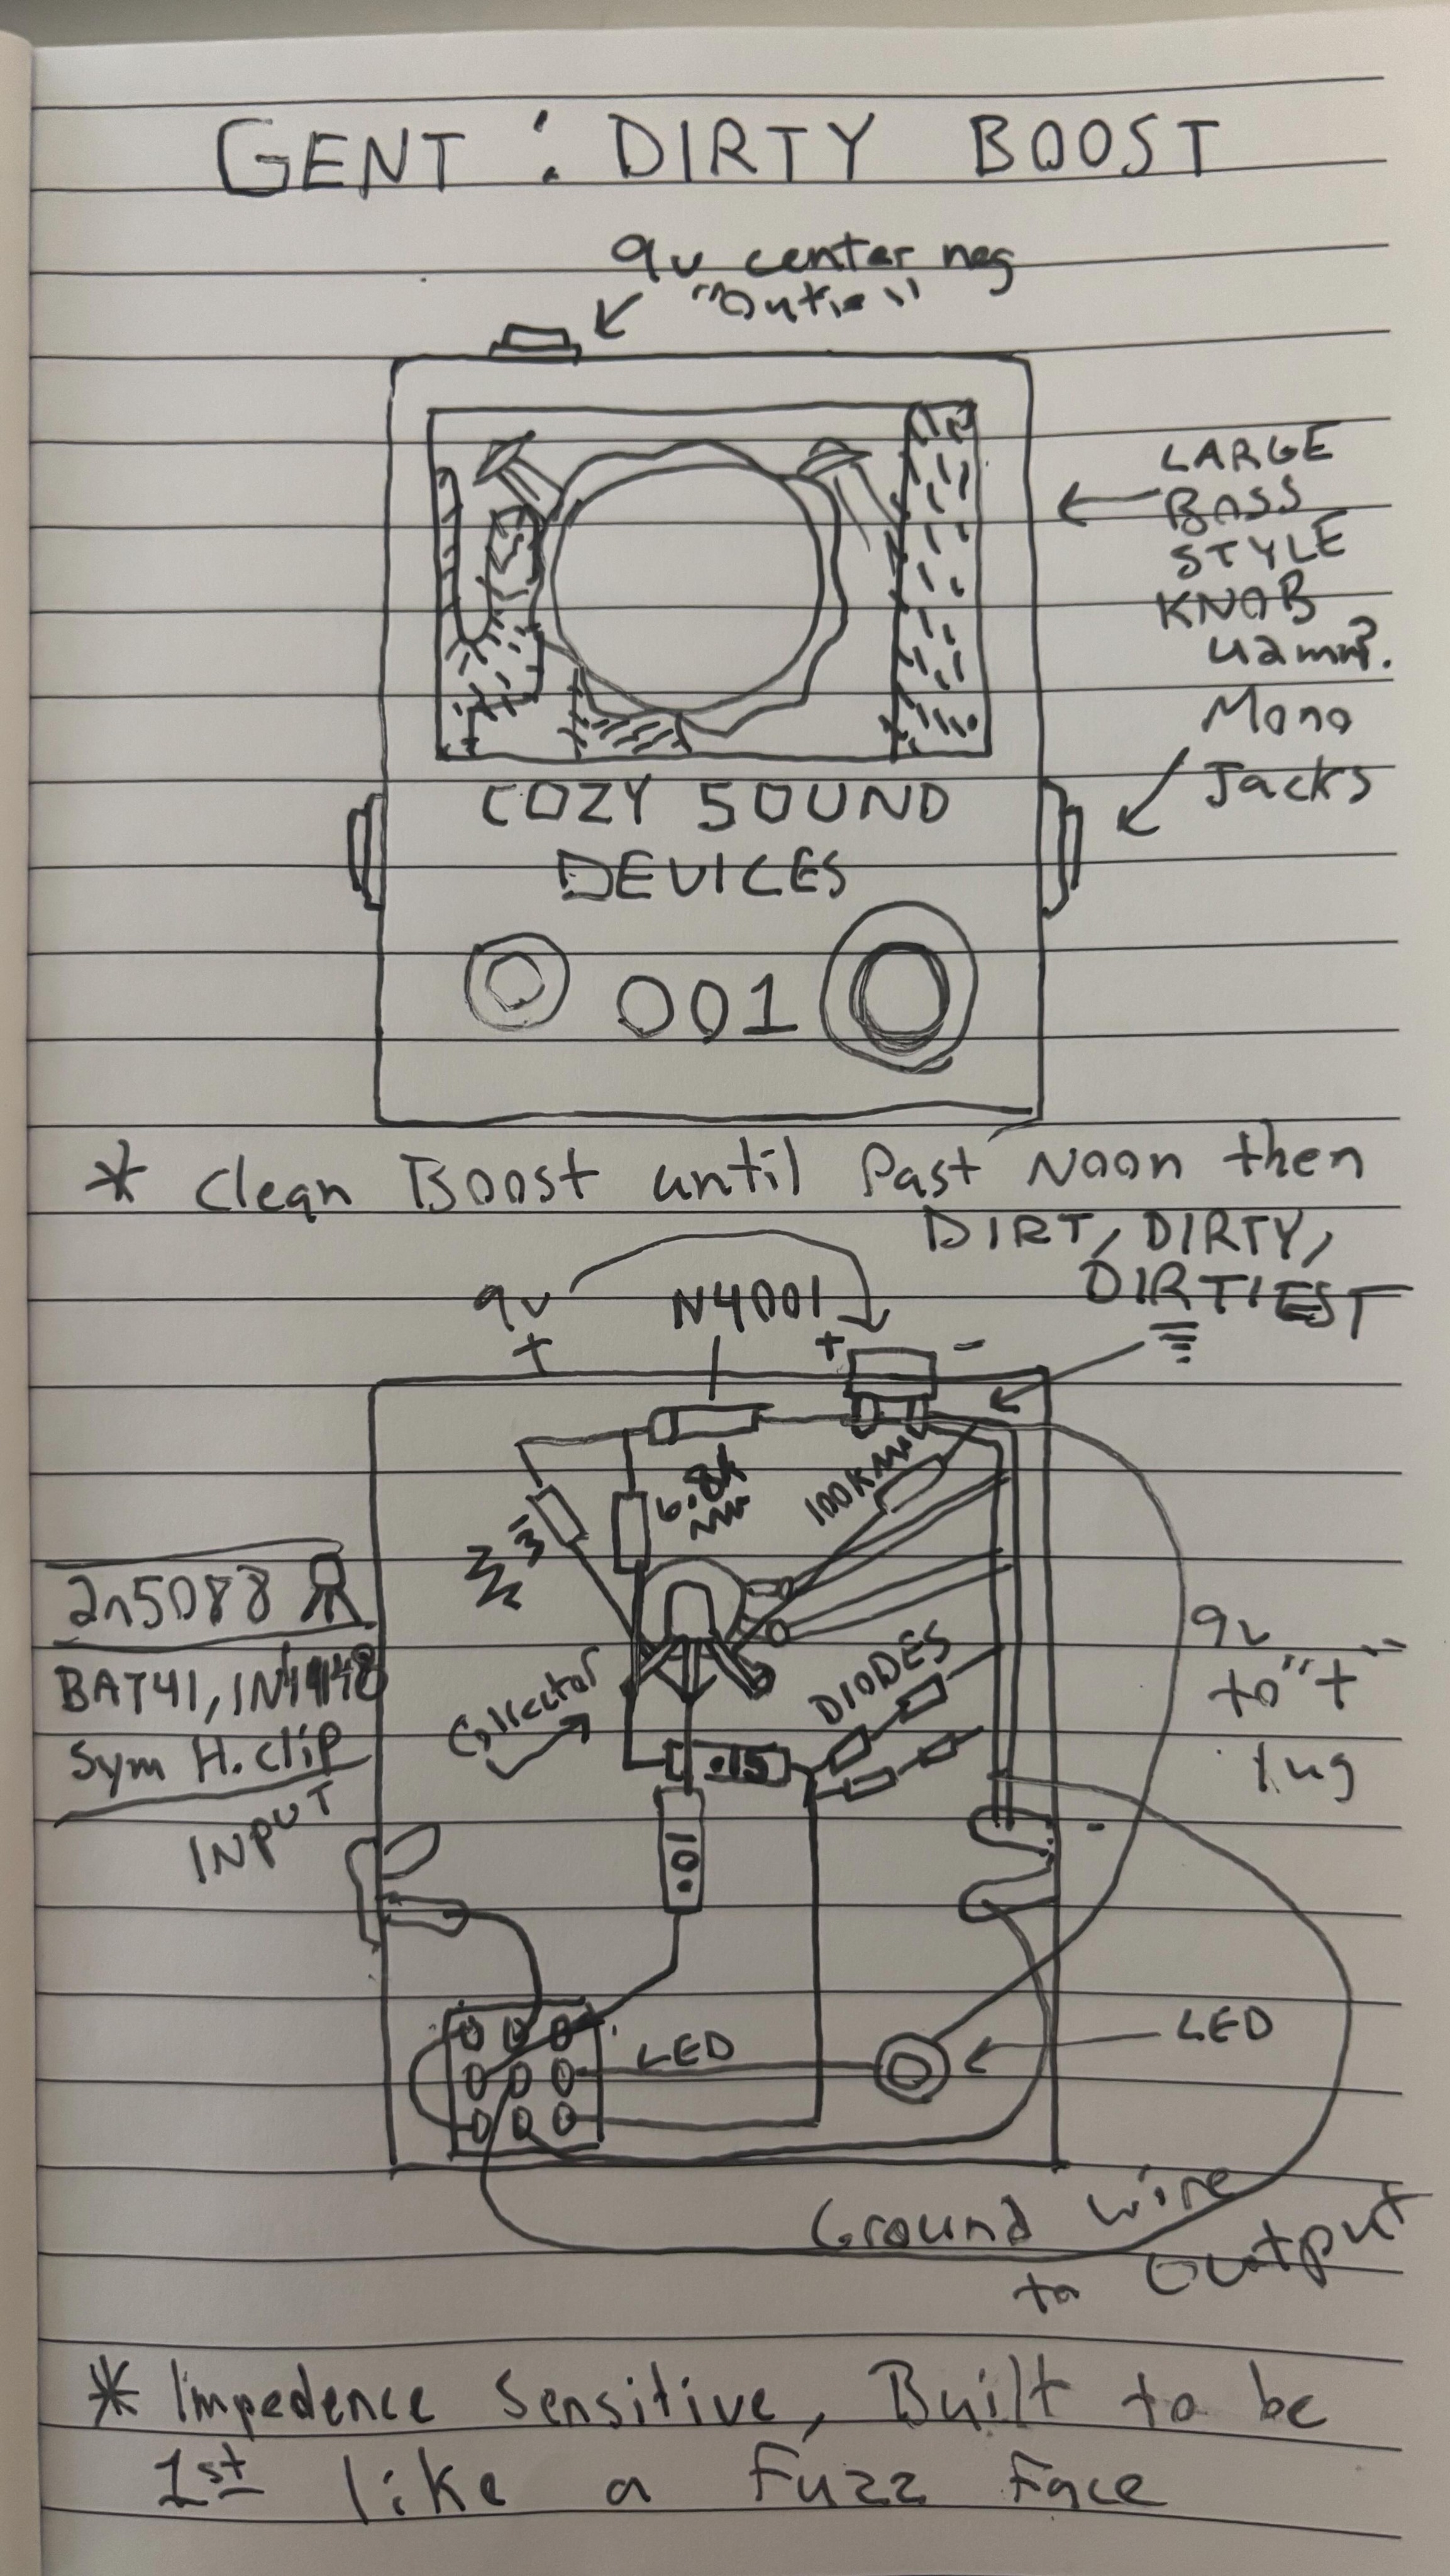 GENT : DIRTY BOOST
9v center neg
"Outie"
LARGE
BASS
STYLE
KNOB
Mono
Jacks
COZY SOUND
DEVICES
001
* Clean Boost until Past Noon then
DIRT, DIRTY,
DIRTIEST
9v
+
N4001
+ -
6.8k
100K
2n5088
BAT41, IN4148
Sym H. clip
INPUT
Collector
DIODES
.15
.01
9v
to "+"
lug
-
LED
LED
Ground wire
to output
* Impedence Sensitive, Built to be
1st like a Fuzz Face